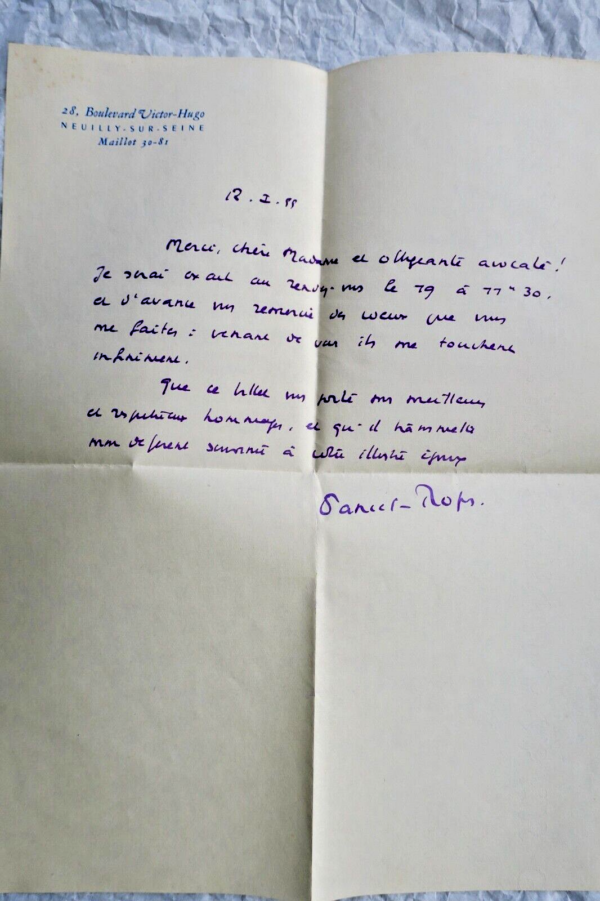 28, Boulevard Victor-Hugo
NEUILLY-SUR-SEINE
Maillot 30-81
12.I.55
Merci, chère Madame et obligeante avocate!
Je serai exact au rendez-vous le 19 à 11h30.
et d'avance vous remercie des voeux que vous
me faites : venant de vous ils me touchent
infiniment.
Que ce billet vous porte mes meilleurs
et respectueux hommages, et qu'il transmette
mon déférent souvenir à votre illustre époux
Daniel-Rops.